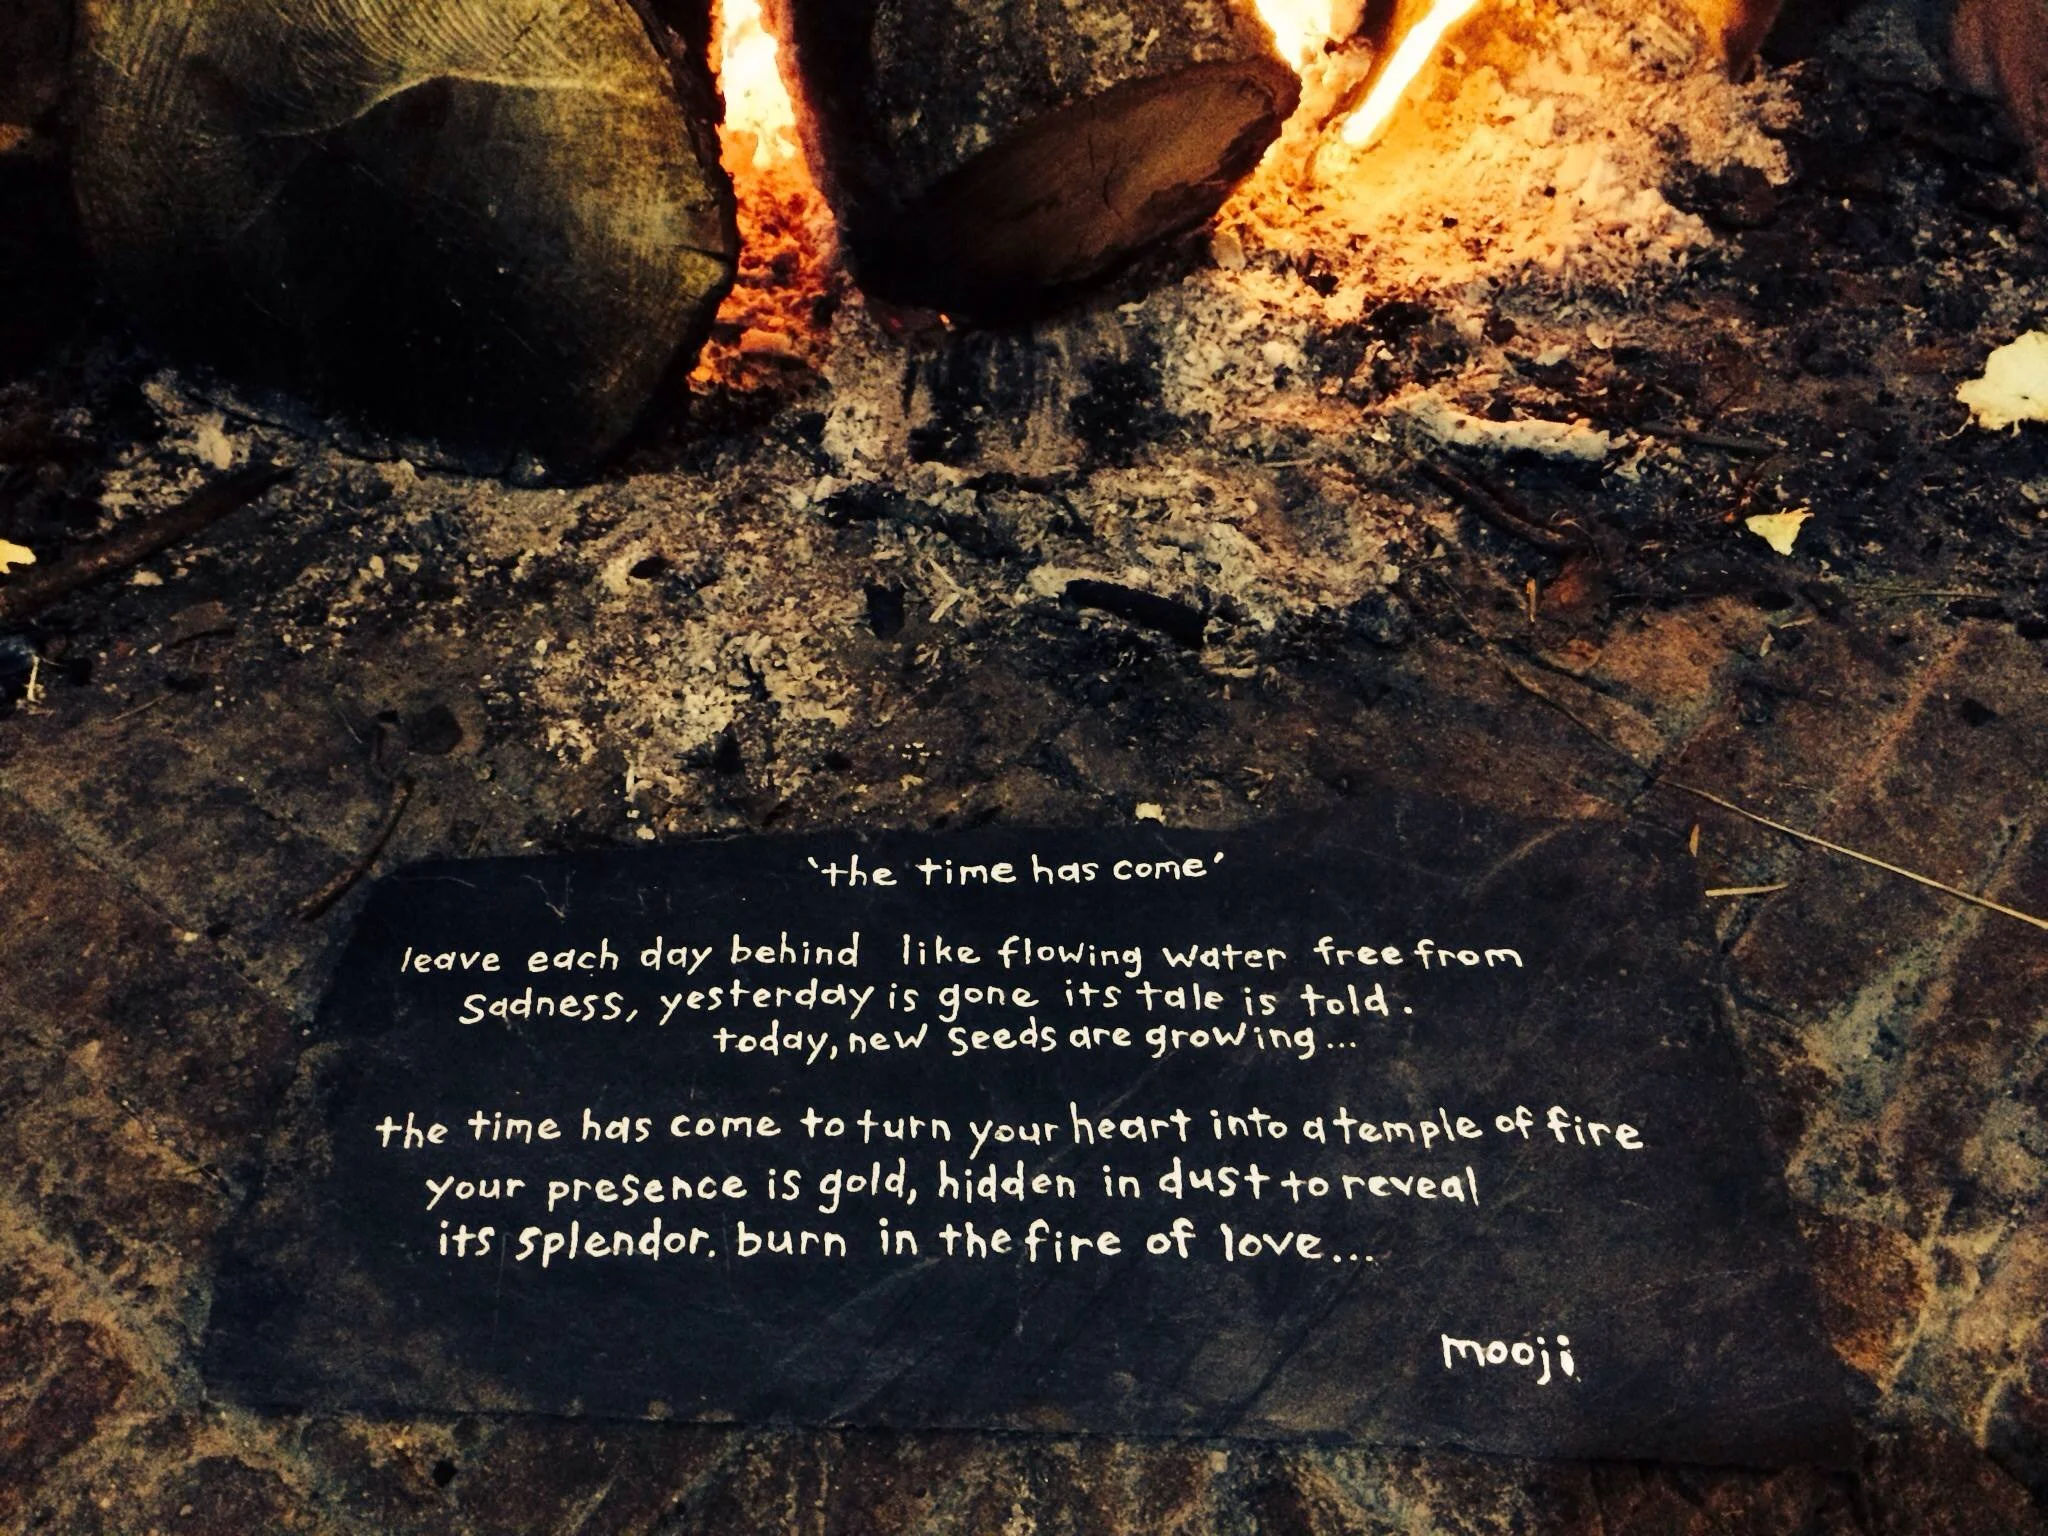 'the time has come'
leave each day behind like flowing water free from
sadness, yesterday is gone its tale is told.
today, new seeds are growing...
the time has come to turn your heart into a temple of fire
your presence is gold, hidden in dust to reveal
its splendor. burn in the fire of love...
mooji